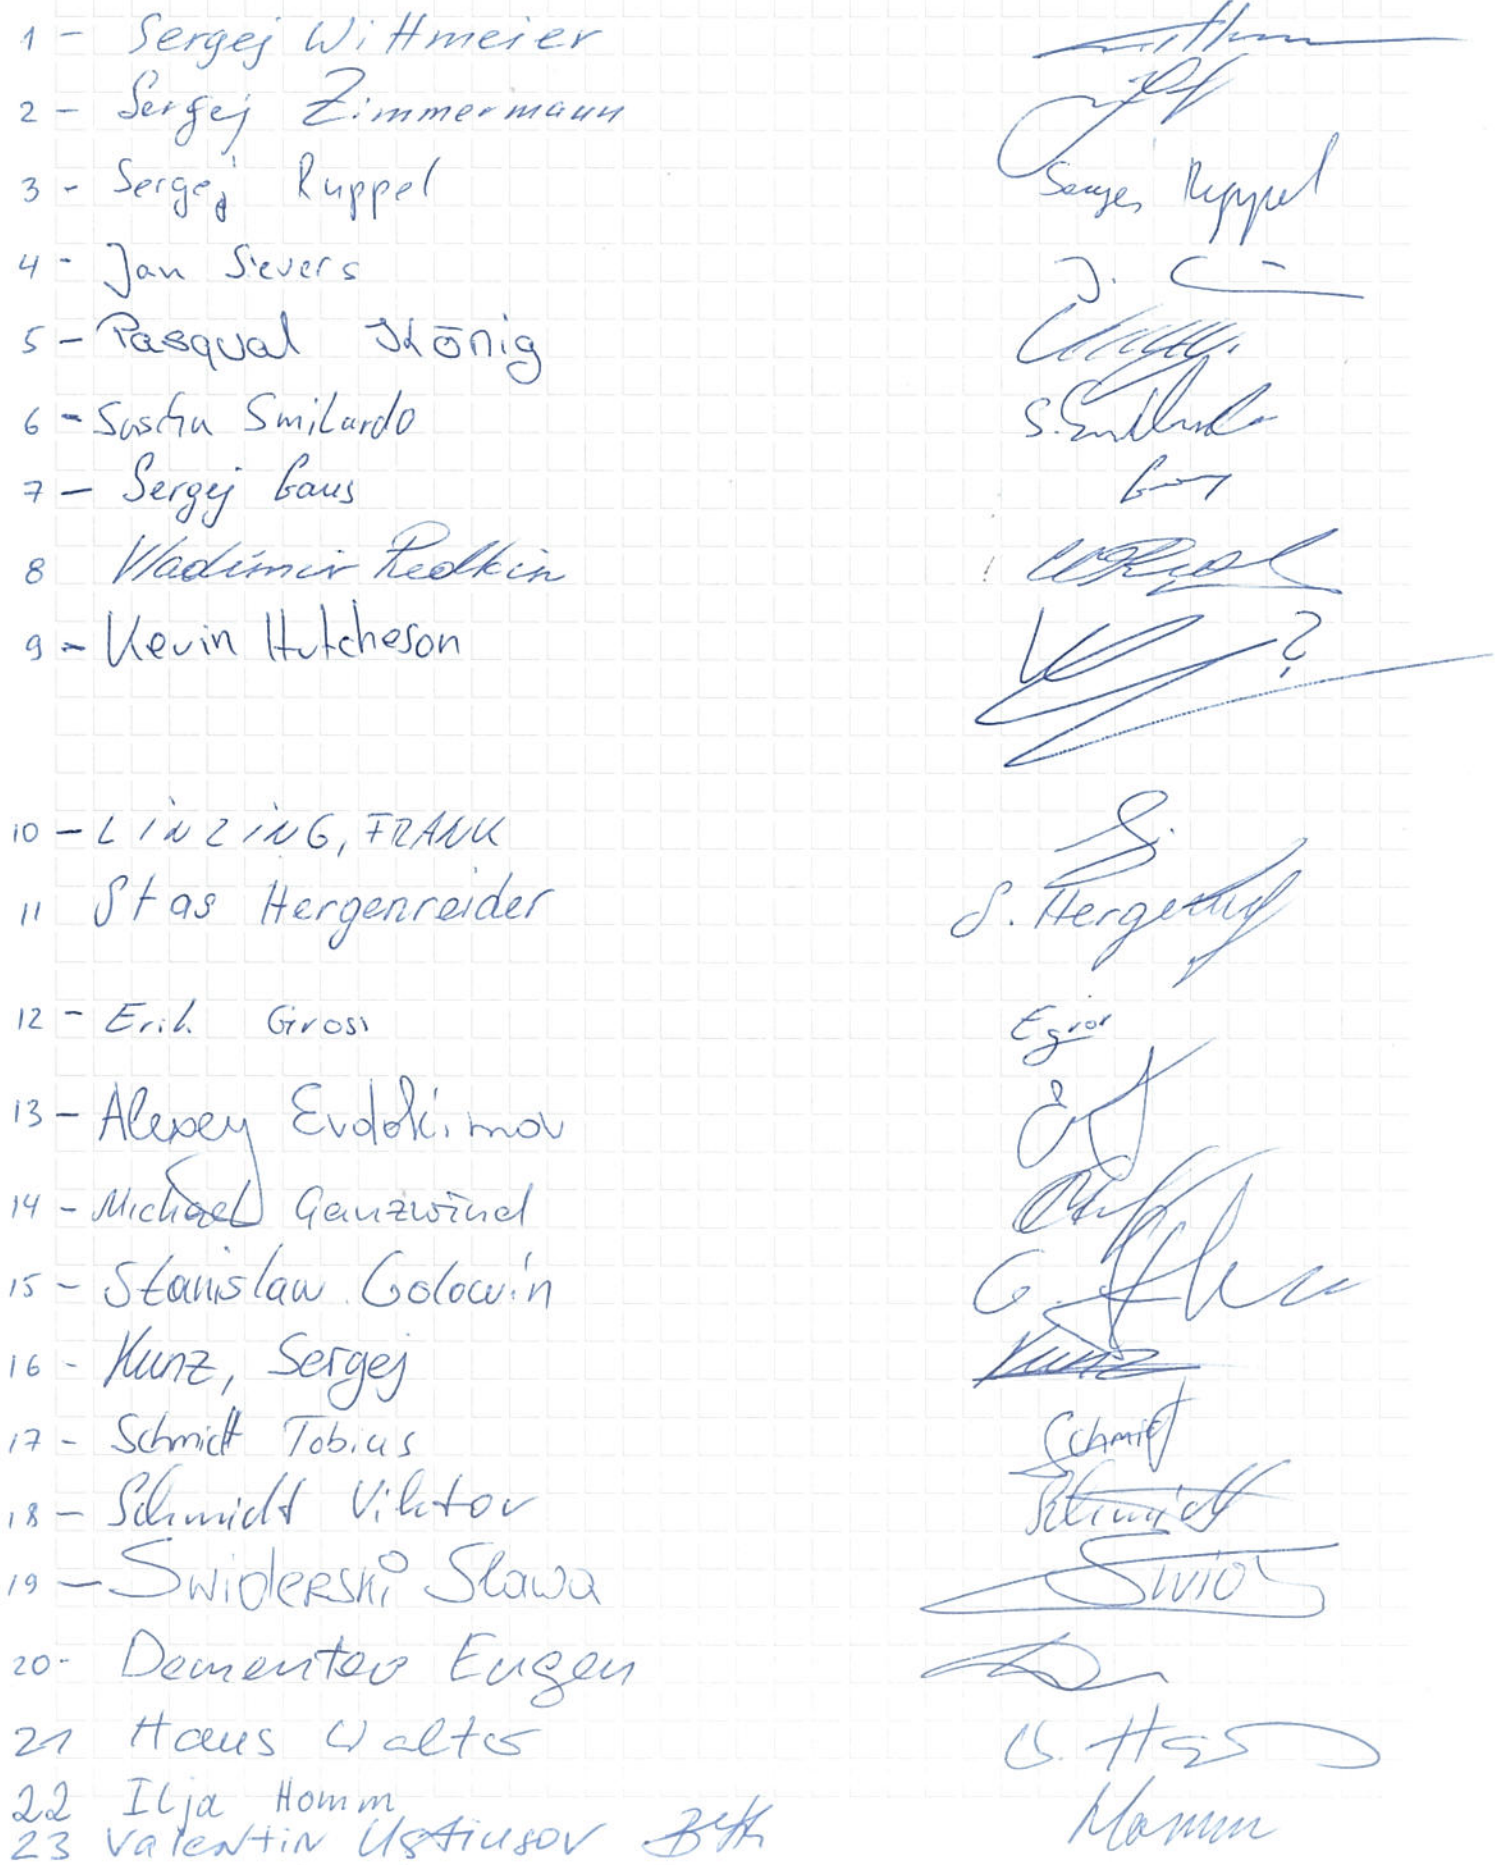 1 - Sergej Wittmeier
2 - Sergej Zimmermann
3 - Sergej Ruppel Sergej Ruppel
4 - Jan Sievers J.
5 - Pasqual König
6 - Sascha Smilardo
7 - Sergej Gaus
8 Vladimir Redkin
9 - Kevin Hutcheson ?
10 - LINZING, FRANK
11 Stas Hergenreider S.
12 - Erik Gross
13 - Alexey Evdokimov
14 - Michael Ganzwind
15 - Stanislaw Golowin G.
16 - Kunz, Sergej Kunz
17 - Schmidt Tobias Schmidt
18 - Schmidt Viktor Schmidt
19 - Swiderski Slawa
20 - Dementev Eugen
21 Haus Walter
22 Ilja Homm Homm
23 Valentin Ustiugov